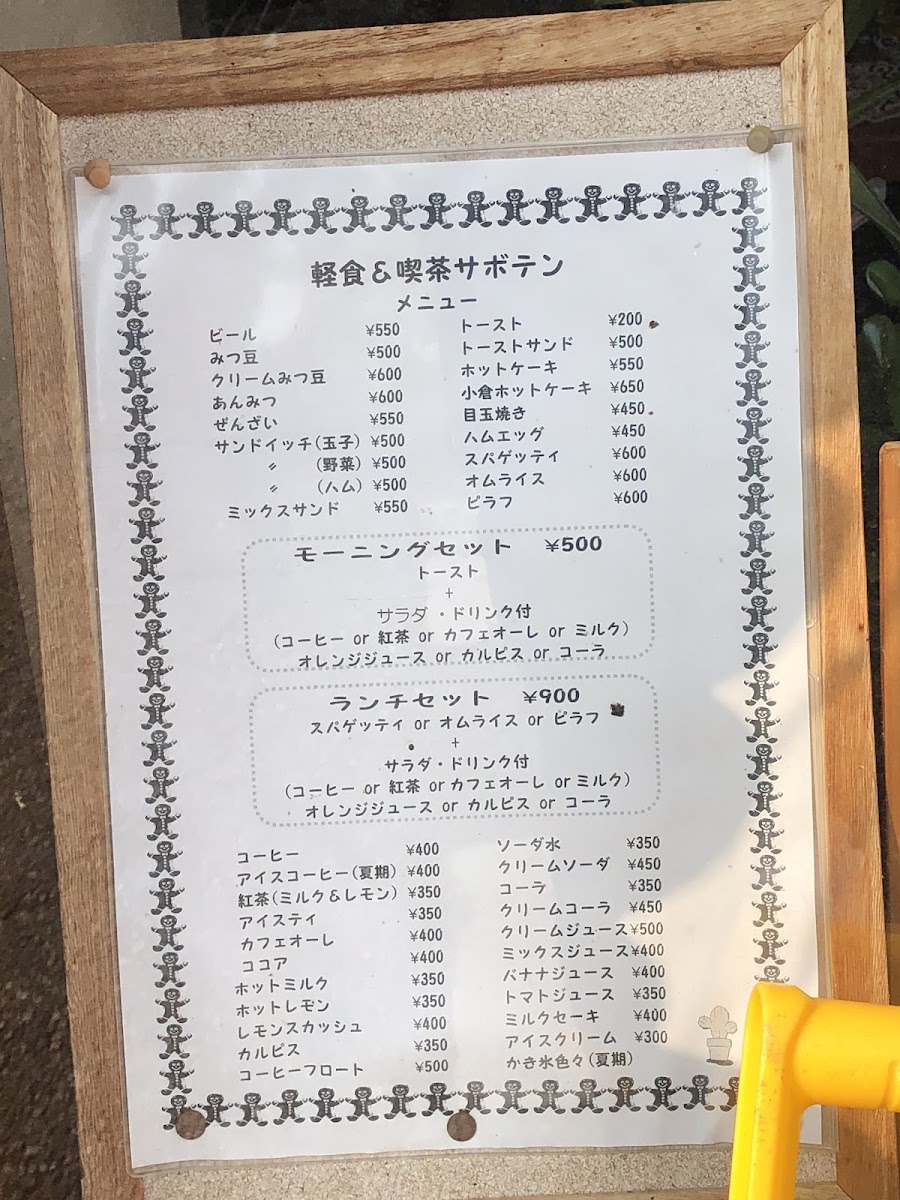 軽食&喫茶サボテン
メニュー
ビール ¥550
みつ豆 ¥500
クリームみつ豆 ¥600
あんみつ ¥600
ぜんざい ¥550
サンドイッチ(玉子) ¥500
〃 (野菜) ¥500
〃 (ハム) ¥500
ミックスサンド ¥550
トースト ¥200
トーストサンド ¥500
ホットケーキ ¥550
小倉ホットケーキ ¥650
目玉焼き ¥450
ハムエッグ ¥450
スパゲッティ ¥600
オムライス ¥600
ピラフ ¥600
モーニングセット ¥500
トースト
+
サラダ・ドリンク付
(コーヒー or 紅茶 or カフェオーレ or ミルク)
オレンジジュース or カルピス or コーラ
ランチセット ¥900
スパゲッティ or オムライス or ピラフ
+
サラダ・ドリンク付
(コーヒー or 紅茶 or カフェオーレ or ミルク)
オレンジジュース or カルピス or コーラ
コーヒー ¥400
アイスコーヒー(夏期) ¥400
紅茶(ミルク&レモン) ¥350
アイスティ ¥350
カフェオーレ ¥400
ココア ¥400
ホットミルク ¥350
ホットレモン ¥350
レモンスカッシュ ¥400
カルピス ¥350
コーヒーフロート ¥500
ソーダ水 ¥350
クリームソーダ ¥450
コーラ ¥350
クリームコーラ ¥450
クリームジュース ¥500
ミックスジュース ¥400
バナナジュース ¥400
トマトジュース ¥350
ミルクセーキ ¥400
アイスクリーム ¥300
かき氷色々(夏期)